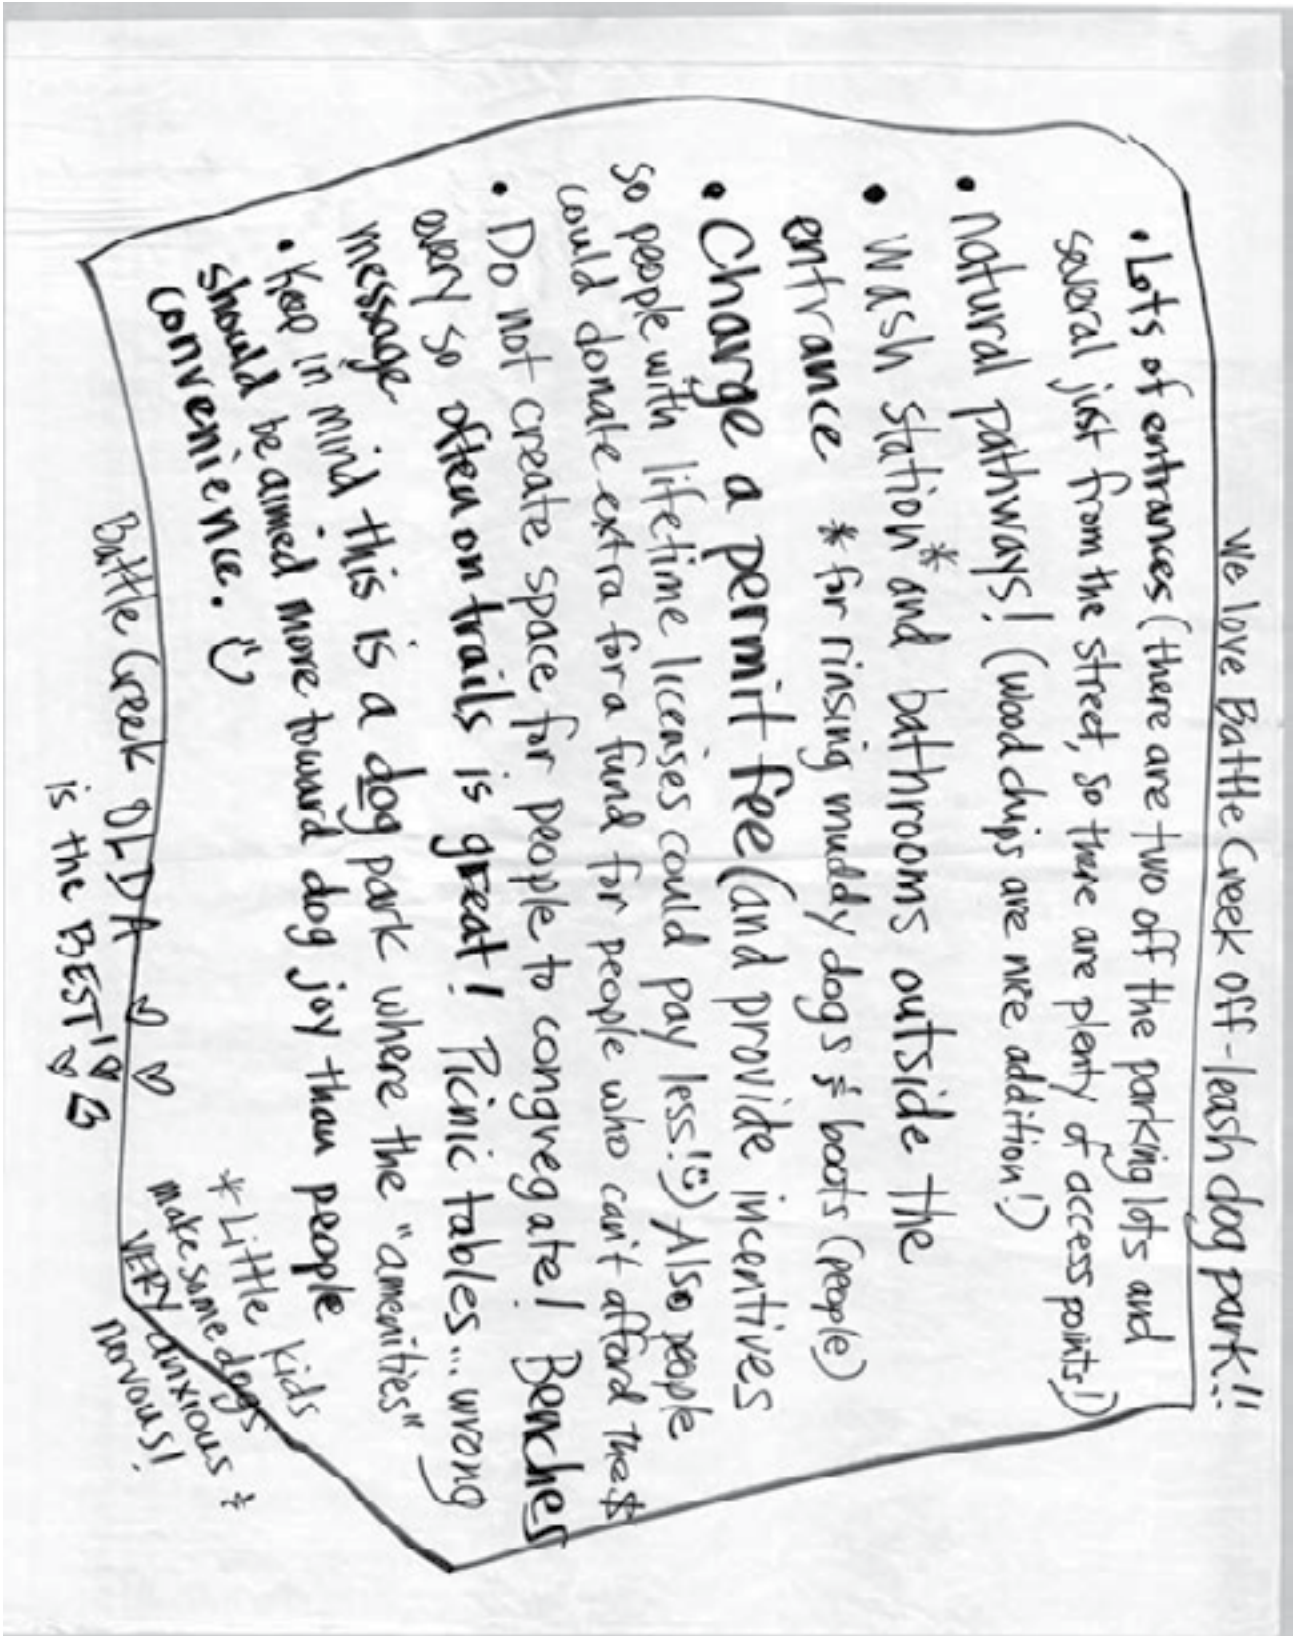 We love Battle Creek off-leash dog park!!
• Lots of entrances (there are two off the parking lots and
several just from the street, so there are plenty of access points!)
• natural pathways! (wood chips are nice addition!)
• Wash station* and bathrooms outside the
entrance * for rinsing muddy dogs & boots (people)
• Charge a permit fee (and provide incentives
so people with lifetime licenses could pay less!☺) Also people
could donate extra for a fund for people who can't afford the $
• Do not create space for people to congregate! Benches
every so often on trails is great! Picnic tables... wrong
message
• Keep in mind this is a dog park where the "amenities"
should be aimed more toward dog joy than people
convenience. ☺
* Little kids
make some dogs
VERY anxious &
nervous!
Battle Creek OLDA ♡ ♡
is the BEST! ♡ ♡ ♡